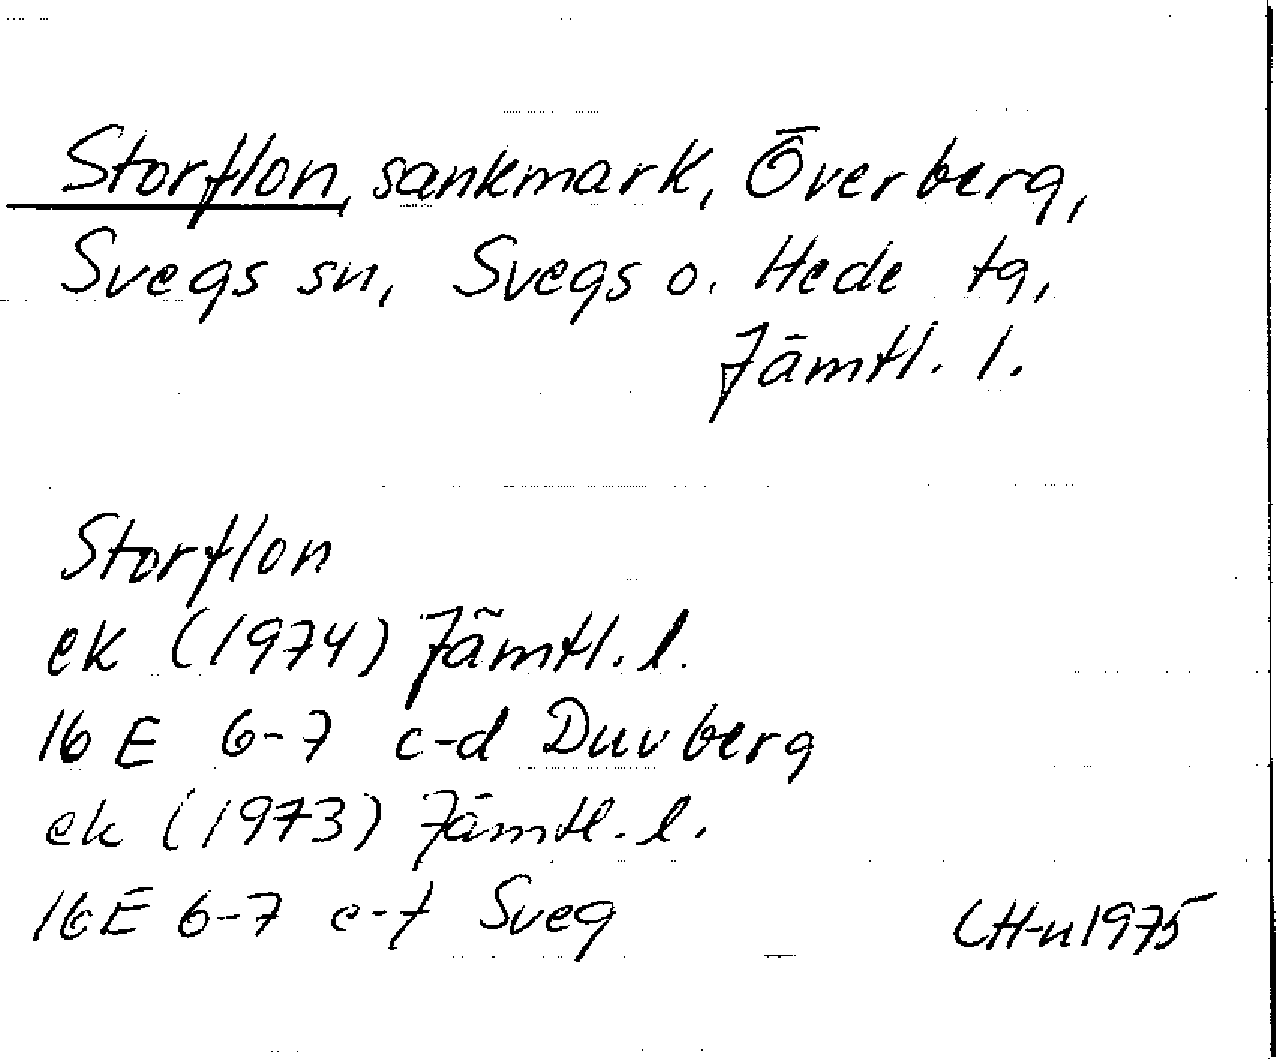 Storflon, sankmark, Överberg,
Svegs sn, Svegs o. Hede tg,
Jämtl. l.
Storflon
ek (1974) Jämtl. l.
16 E 6-7 c-d Duvberg
ek (1973) Jämtl. l.
16 E 6-7 e-f Sveg
LH-n 1975